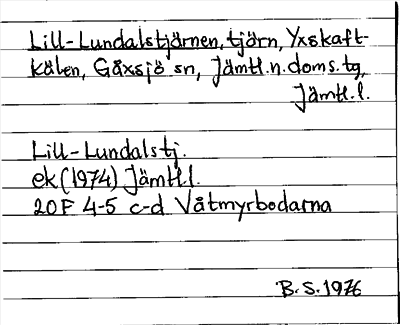 Lill-Lundalstjärnen, tjärn, Yxskaft-
kälen, Gåxsjö sn, Jämtl.n.doms.tg,
Jämtl.l.
Lill-Lundalstj.
ek (1974) Jämtl.l.
20F 4-5 c-d Våtmyrbodarna
B.S. 1976